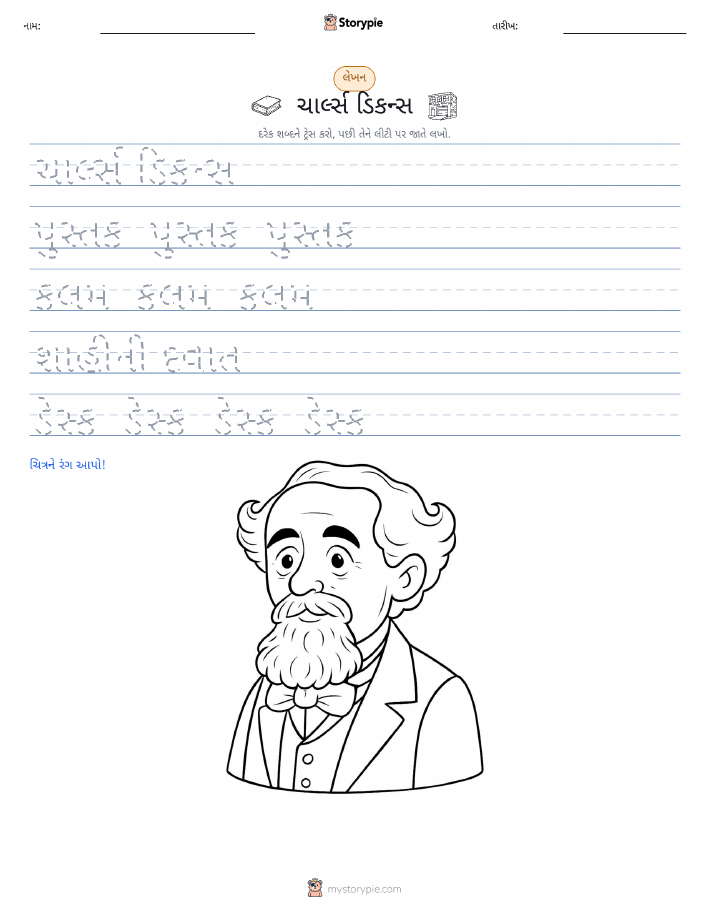 નામ: Storypie તારીખ:
લેખન
ચાર્લ્સ ડિકન્સ
દરેક શબ્દને ટ્રેસ કરો, પછી તેને લીટી પર જાતે લખો.
ચાર્લ્સ ડિકન્સ
પુસ્તક પુસ્તક પુસ્તક
કલમ કલમ કલમ
શાહીની દવાત
ડેસ્ક ડેસ્ક ડેસ્ક ડેસ્ક
ચિત્રને રંગ આપો!
mystorypie.com